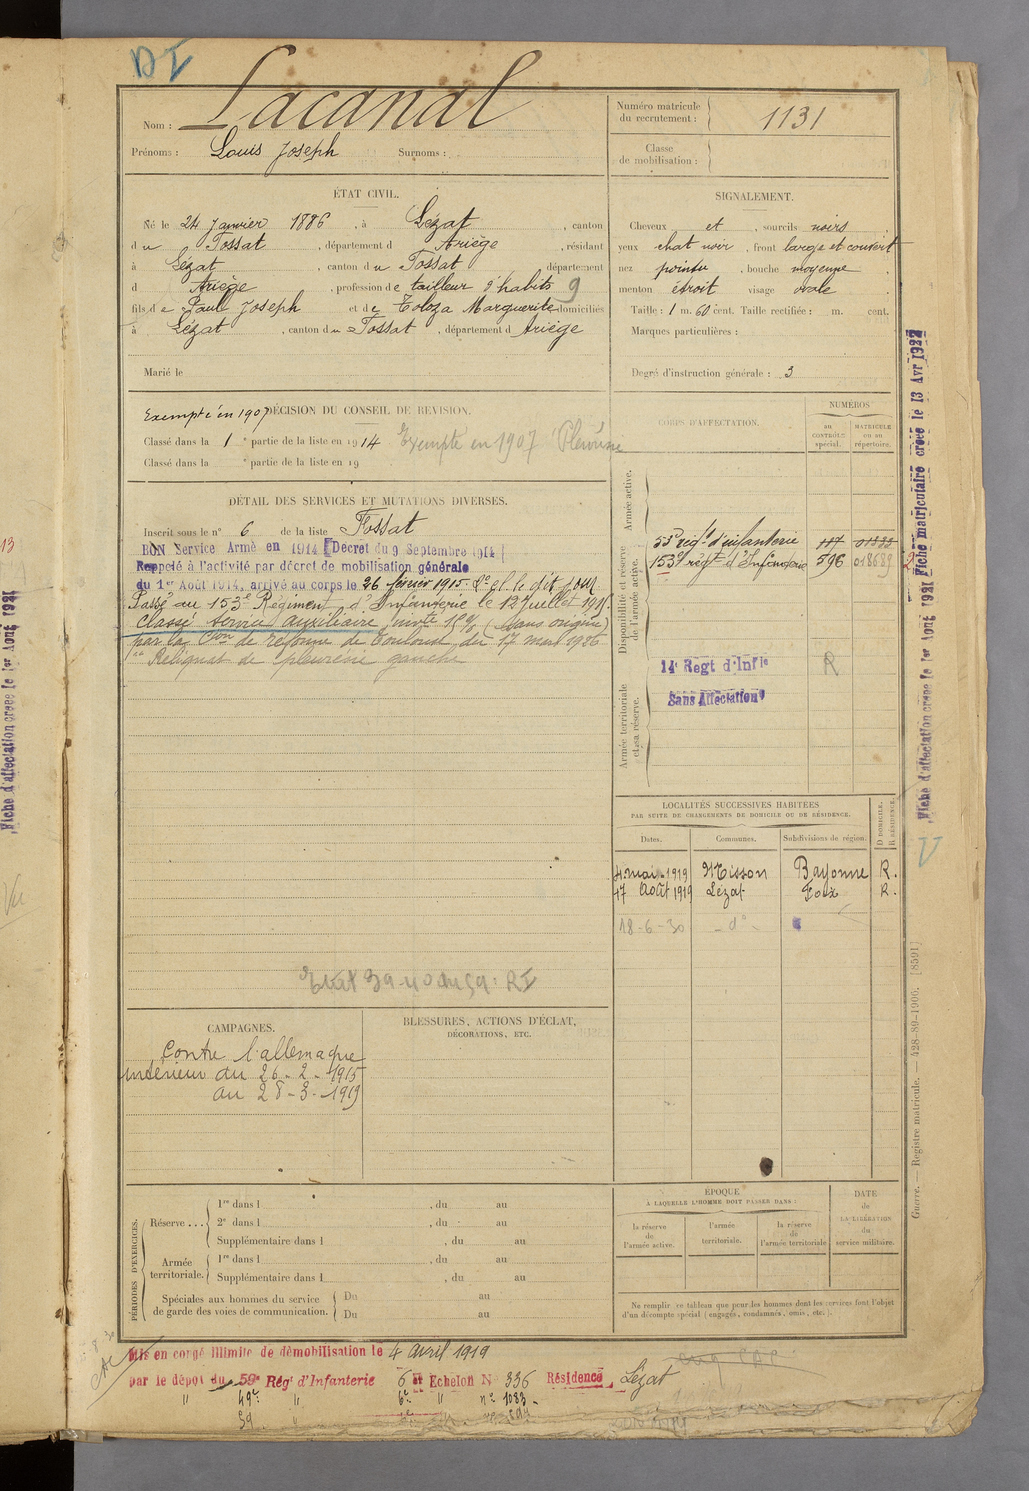 DI
Nom : Lacanal
Prénoms : Louis Joseph Surnoms :
Numéro matricule du recrutement : 1131
Classe de mobilisation :
ÉTAT CIVIL.
Né le 24 Janvier 1886 , à Lézat , canton
du Fossat , département d Ariège , résidant
à Lézat , canton du Fossat département
d Ariège , profession de tailleur d'habits 9
fils de Paul Joseph et de Toloza Marguerite domiciliés
à Lézat , canton du Fossat , département d Ariège
Marié le
SIGNALEMENT.
Cheveux et , sourcils noirs
yeux chat noir , front large et couvert
nez pointu , bouche moyenne
menton étroit visage ovale
Taille : 1 m. 60 cent. Taille rectifiée : m. cent.
Marques particulières :
Degré d'instruction générale : 3
Exempté en 1907 DÉCISION DU CONSEIL DE REVISION.
Classé dans la 1 e partie de la liste en 1914 Exempté en 1907 Pleurésie
Classé dans la e partie de la liste en 19
DÉTAIL DES SERVICES ET MUTATIONS DIVERSES.
Inscrit sous le n° 6 de la liste Fossat
BON Service Armé en 1914 [Décret du 9 Septembre 1914]
Rappelé à l'activité par décret de mobilisation générale
du 1er Août 1914, arrivé au corps le 26 février 1915. 2e cl. le dit jour
Passé au 153e Régiment d'Infanterie le 12 Juillet 1915.
Classé Service Auxiliaire, invté 10% (sans origine)
par la Con de réforme de Toulouse du 17 mars 1926
Reliquat de pleurésie gauche
CORPS D'AFFECTATION.
NUMÉROS
AU CONTRÔLE spécial.
MATRICULE ou au répertoire.
Armée active.
Disponibilité et réserve de l'armée active.
53e régt d'infanterie 117 01333
153e régt d'Infanterie 596 018689
Armée territoriale et sa réserve.
14e Regt d'Infie R
Sans Affectation
LOCALITÉS SUCCESSIVES HABITÉES
PAR SUITE DE CHANGEMENTS DE DOMICILE OU DE RÉSIDENCE.
Dates. Communes. Subdivisions de région. D DOMICILE. R RÉSIDENCE.
4 mai 1919 Misson Bayonne R.
17 Août 1919 Lézat Foix R.
18-6-30 - d° -
CAMPAGNES.
Contre l'allemagne
intérieur du 26-2-1915
au 28-3-1919
BLESSURES, ACTIONS D'ÉCLAT,
DÉCORATIONS, ETC.
PÉRIODES D'EXERCICES.
Réserve ...
1re dans l , du au
2e dans l , du au
Supplémentaire dans l , du au
Armée territoriale.
1re dans l , du au
Supplémentaire dans l , du au
Spéciales aux hommes du service de garde des voies de communication.
Du au
Du au
ÉPOQUE
À LAQUELLE L'HOMME DOIT PASSER DANS :
la réserve de l'armée active.
l'armée territoriale.
la réserve de l'armée territoriale
DATE de LA LIBÉRATION du service militaire.
Ne remplir ce tableau que pour les hommes dont les services font l'objet
d'un décompte spécial (engagés, condamnés, omis, etc.).
Mis en congé illimité de démobilisation le 4 avril 1919
par le dépôt du 59e Régt d'Infanterie 6e Echelon N° 336 Résidence Lézat
" 49e " 6e " n° 1083
Fiche matriculaire créée le 13 Avr 1922
Fiche d'affectation créée le 1er Août 1921
Guerre. — Registre matricule. — 428-89-1906. [8591]
Fiche d'affectation créée le 1er Août 1921
13
Vu